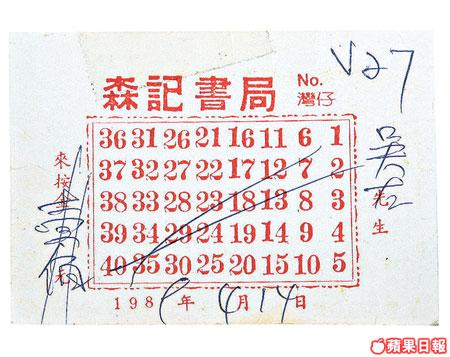 森記書局 No. V27
灣仔
36 31 26 21 16 11 6 1
37 32 27 22 17 12 7 2
38 33 28 23 18 13 8 3
39 34 29 24 19 14 9 4
40 35 30 25 20 15 10 5
先生
來按金 元
198 年 4月14日
蘋果日報